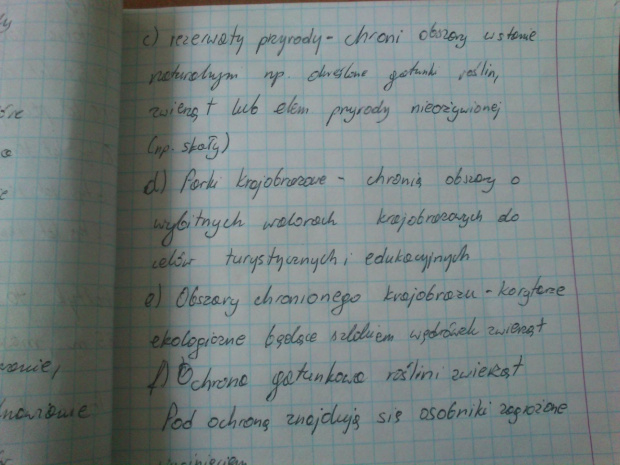 c) rezerwaty przyrody - chroni obszary w stanie
naturalnym np. określone gatunk roślin,
zwierząt lub elem przyrody nieożywionej
(np. skały)
d) Parki krajobrazowe - chronią obszary o
wybitnych walorach krajobrazowych do
celów turystycznych i edukacyjnych
e) Obszary chronionego krajobrazu - korytarze
ekologiczne będące szlakiem wędrówek zwierząt
f) Ochrona gatunkowa roślin i zwierząt
Pod ochroną znajdują się osobniki zagrożone